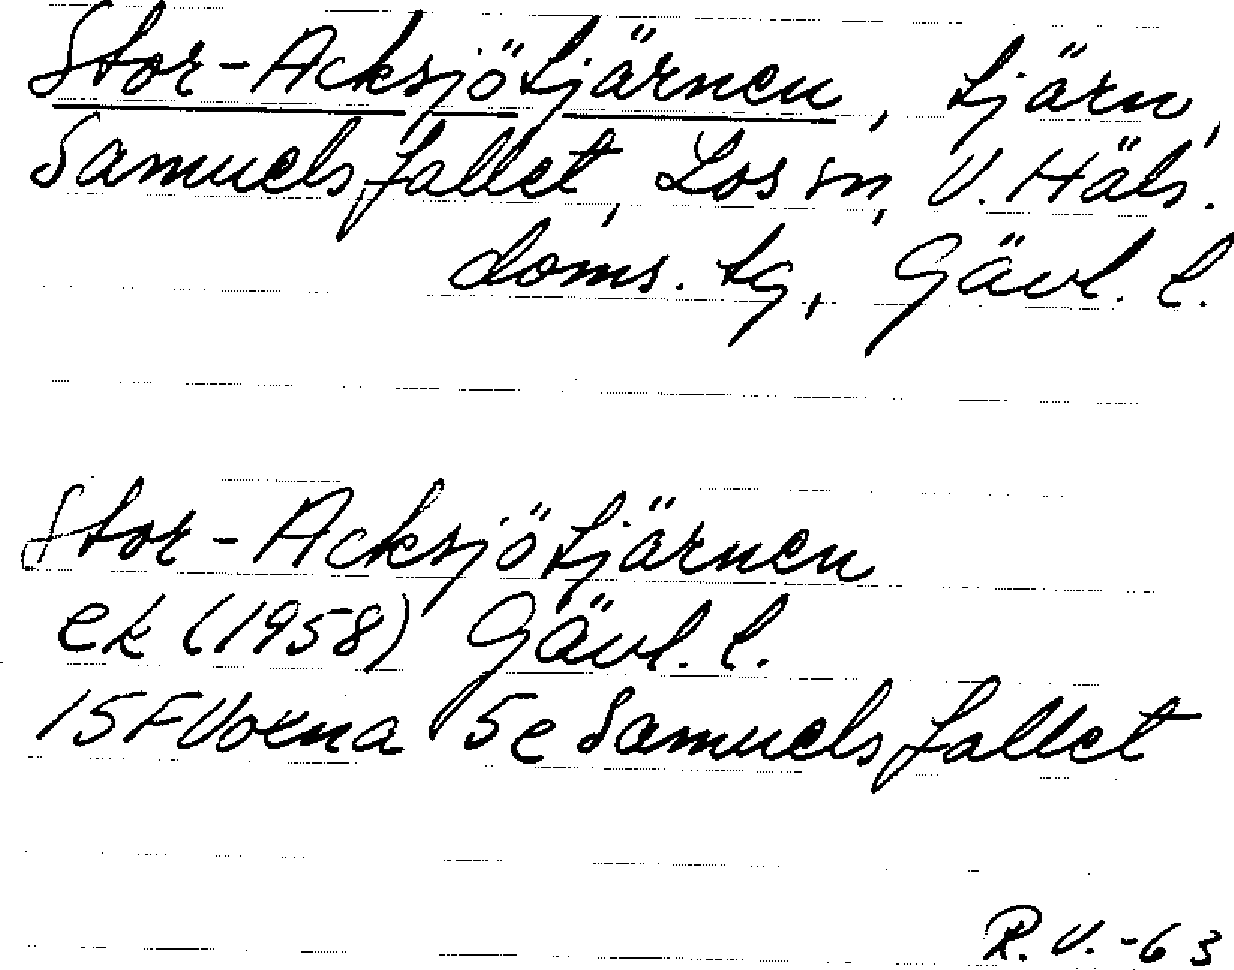 Stor-Acksjötjärnen, tjärn,
Samuelsfallet, Los sn, V. Häls.
doms. tg, Gävl. l.
Stor-Acksjötjärnen
ek (1958) Gävl. l.
15F Voxna 5e Samuelsfallet
R.V.-63